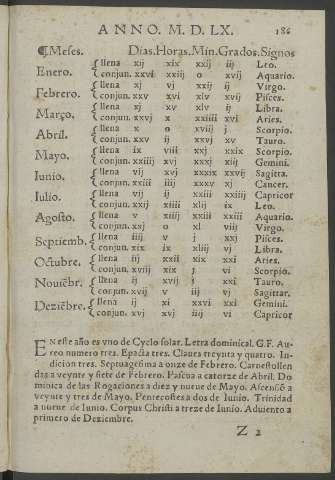 ANNO. M. D. LX. 186
¶Meses. Dias. Horas. Min. Grados. Signos
Enero. {llena xij xix xxij ij Leo.
{conjun. xxvi xxiij o xvij Aquario.
Febrero. {llena xj vj xxij ij Virgo.
{conjun. xxv xvi xlv xvij Pisces.
Março. {llena xj xv xlv ij Libra.
{conjun. xxvj x xiiij xvi Aries.
Abril. {llena x o xviij j Scorpio.
{conjun. xxv ij xxvj xv Tauro.
Mayo. {llena ix viij xxj xxix Scorpio.
{conjun. xxiiij xvj xxxj xiij Gemini.
Iunio. {llena vij xvj xxvij Sagitta.
{conjun. xxiij iiij xxxv xj Cancer.
Iulio. {llena vij ij xxiij Capricor
{conjun. xxij xiiij xlij ix Leo.
Agosto. {llena v xiiij xxiij xxiij Aquario.
{conjun. xxj o xl viij Virgo.
Septiemb. {llena iiij v j xxj Pisces.
{conjun. xix ix xliij vj Libra.
Octubre. {llena iij xxij xix xxi Aries.
{conjun. xviij xix j vi Scorpio.
Nouiẽbr. {llena ij xvij j xxi Tauro.
{conjun. xvij v iij vj Sagittar.
Deziẽbre. {llena ij xi xxvi xxi Gemini.
{conjun. xvj xvj iij vi Capricor
EN este año es vno de Cyclo solar. Letra dominical. G.F. Au-
reo numero tres. Epacta tres. Claues treynta y quatro. In-
dicion tres. Septuagesima a onze de Febrero. Carnestollen
das a veynte y siete de Febrero. Pascua a catorze de Abril. Do
minica de las Rogaciones a diez y nueue de Mayo. Ascensõ a
veynte y tres de Mayo. Pentecostes a dos de Iunio. Trinidad
a nueue de Iunio. Corpus Christi a treze de Iunio. Aduiento a
primero de Deziembre.
Z 2